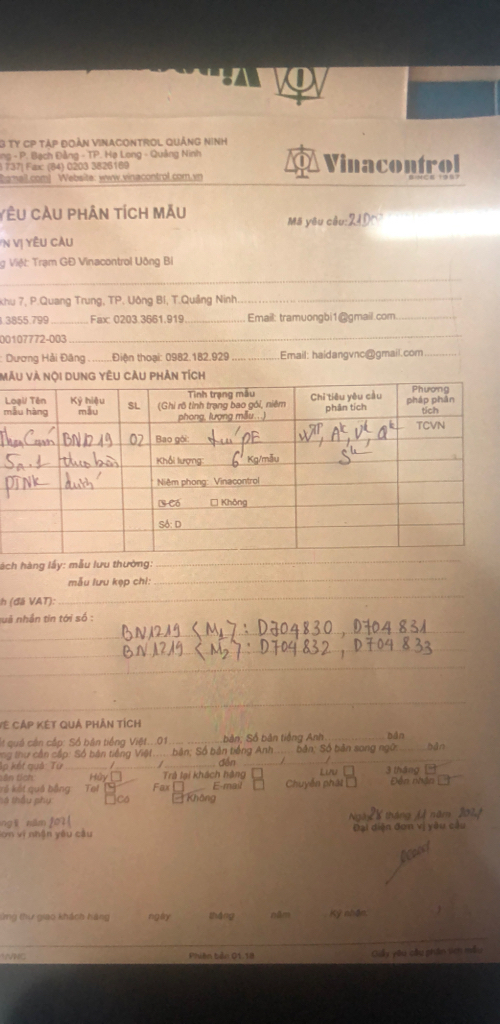 TY CP TẬP ĐOÀN VINACONTROL QUẢNG NINH
P. Bạch Đằng - TP. Hạ Long - Quảng Ninh
737| Fax: (84) 0203 3826169
Website: www.vinacontrol.com.vn
Vinacontrol
SINCE 1957
YÊU CẦU PHÂN TÍCH MẪU
Mã yêu cầu:
VỊ YÊU CẦU
Việt: Trạm GĐ Vinacontrol Uông Bí
khu 7, P.Quang Trung, TP. Uông Bí, T.Quảng Ninh
3855.799 Fax: 0203.3661.919 Email: tramuongbi1@gmail.com
00107772-003
: Dương Hải Đăng Điện thoại: 0982.182.929 Email: haidangvnc@gmail.com
MẪU VÀ NỘI DUNG YÊU CẦU PHÂN TÍCH
Loại/ Tên mẫu hàng
Ký hiệu mẫu
SL
Tình trạng mẫu
(Ghi rõ tình trạng bao gói, niêm phong, lượng mẫu...)
Chỉ tiêu yêu cầu phân tích
Phương pháp phân tích
Than Cám BN1219 02 Bao gói: túi PE TCVN
5a.1 Khối lượng: 6 Kg/mẫu
Niêm phong: Vinacontrol
Có Không
Số: D
khách hàng lấy: mẫu lưu thường:
mẫu lưu kẹp chì:
(đã VAT):
quả nhắn tin tới số :
BN1219 (M1): D704830, D704831
BN1219 (M2): D704832, D704833
VỀ CẤP KẾT QUẢ PHÂN TÍCH
kết quả cần cấp: Số bản tiếng Việt...01 bản; Số bản tiếng Anh bản
thư cần cấp: Số bản tiếng Việt bản; Số bản tiếng Anh bản; Số bản song ngữ bản
cấp kết quả: Từ / / đến / /
phân tích: Hủy Trả lại khách hàng Lưu 3 tháng
kết quả bằng Tel Fax E-mail Chuyển phát Đến nhận
thầu phụ Có Không
năm 2021
Đơn vị nhận yêu cầu
Ngày 28 tháng 11 năm 2021
Đại diện đơn vị yêu cầu
thư giao khách hàng ngày tháng năm Ký nhận:
Phiên bản 01.18
Giấy yêu cầu phân tích mẫu